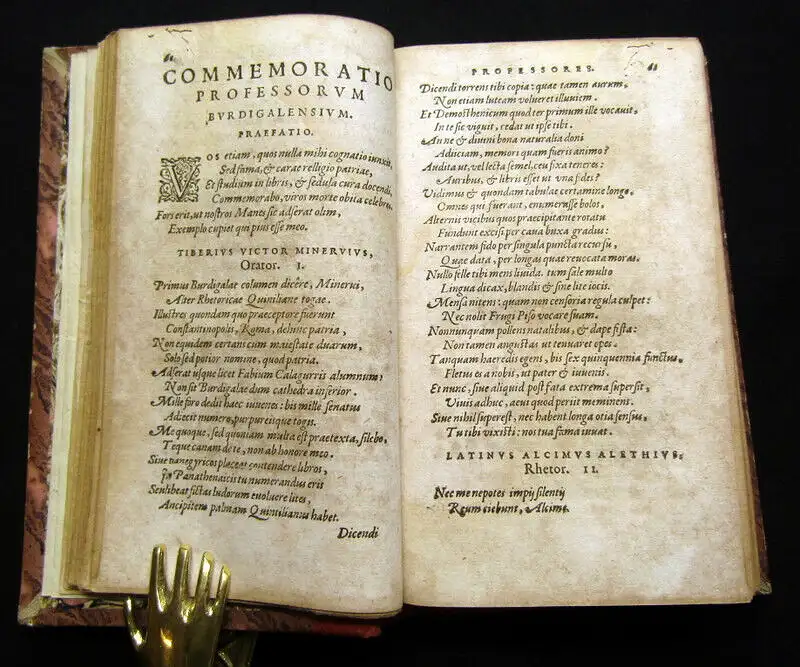 COMMEMORATIO
PROFESSORVM
BVRDIGALENSIVM.
PRAEFATIO.
VOS etiam, quos nulla mihi cognatio iunxit,
Sed fama, & carae relligio patriae,
Et studium in libris, & sedula cura docendi,
Commemorabo, viros morte obita celebres.
Fors erit, ut nostros Manes sic adserat olim,
Exemplo cupiet qui pius esse meo.
TIBERIVS VICTOR MINERVIVS,
Orator. I.
Primus Burdigalae columen dicêre, Minerui,
Alter Rhetoricae Quintiliane togae.
Illustres quondam quo praeceptore fuerunt
Constantinopolis, Roma, dehinc patria,
Non equidem certans cum maiestate duarum,
Solo sed potior nomine, quod patria.
Adserat usque licet Fabium Calagurris alumnum,
Non sit Burdigalae dum cathedra inferior.
Mille foro dedit haec iuuenes: bis mille senatus
Adiecit numero, purpureisque togis.
Me quoque, sed quoniam multa est praetexta, silebo,
Teque canam de te, non ab honore meo.
Siue panegyricos placeat contendere libros,
In Panathenaicis tu numerandus eris
Seu libeat fictas ludorum euoluere lites,
Ancipitem palmam Quintilianus habet.
Dicendi
PROFESSORES.
Dicendi torrens tibi copia: quae tamen aurum,
Non etiam luteam volueret illuuiem.
Et Demosthenicum quod ter primum ille vocauit,
In te sic viguit, cedat ut ipse tibi.
Anne & diuini bona naturalia doni
Adiiciam, memori quam fueris animo?
Audita ut, vel lecta semel, ceu fixa teneres:
Auribus, & libris esset ut vna fides?
Vidimus & quondam tabulae certamine longo,
Omnes qui fuerant, enumerasse bolos,
Alternis vicibus quos praecipitante rotatu
Fundunt excisi per caua buxa gradus:
Narrantem fido per singula puncta recursu,
Quae data, per longas quae reuocata moras.
Nullo felle tibi mens liuida. tum sale multo
Lingua dicax, blandis & sine lite iocis.
Mensa nitens: quam non censoria regula culpet:
Nec nolit Frugi Piso vocare suam.
Nonnunquam pollens natalibus, & dape festa:
Non tamen angustas ut tenuaret opes.
Tanquam haeredis egens, bis sex quinquennia functus,
Fletus es a nobis, ut pater & iuuenis.
Et nunc, siue aliquid post fata extrema supersit,
Viuis adhuc, aeui quod periit meminens.
Siue nihil superest, nec habent longa otia sensus,
Tu tibi vixisti: nos tua fama iuuat.
LATINVS ALCIMVS ALETHIVS,
Rhetor. II.
Nec me nepotes impij silentij
Reum ciebunt, Alcime.